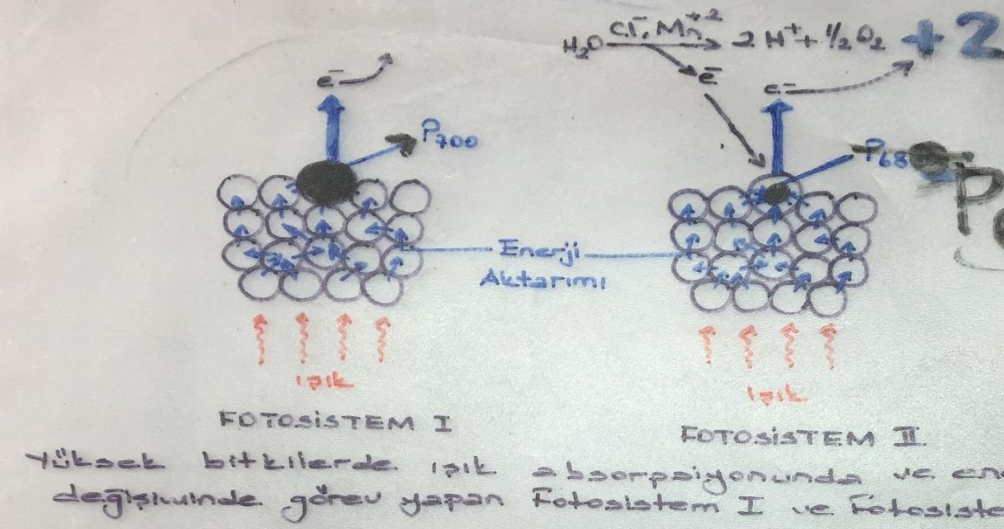 H₂O Cl⁻, Mn⁺² 2 H⁺ + ½ O₂ + 2
e⁻
e⁻ e⁻
P₇₀₀
P₆₈
Enerji
Aktarımı
ışık
ışık
FOTOSİSTEM I
FOTOSİSTEM II
Yüksek bitkilerde ışık absorpsiyonunda ve en
değişiminde görev yapan Fotosistem I ve Fotosiste